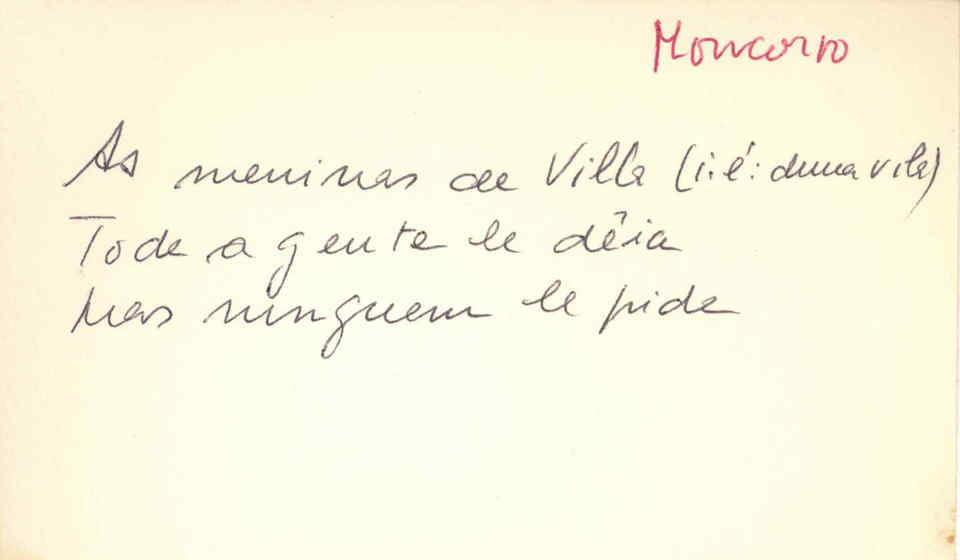 Moncorvo
As meninas da Villa (i.é: duma vila)
Toda a gente le dêia
Mas ninguem le pida